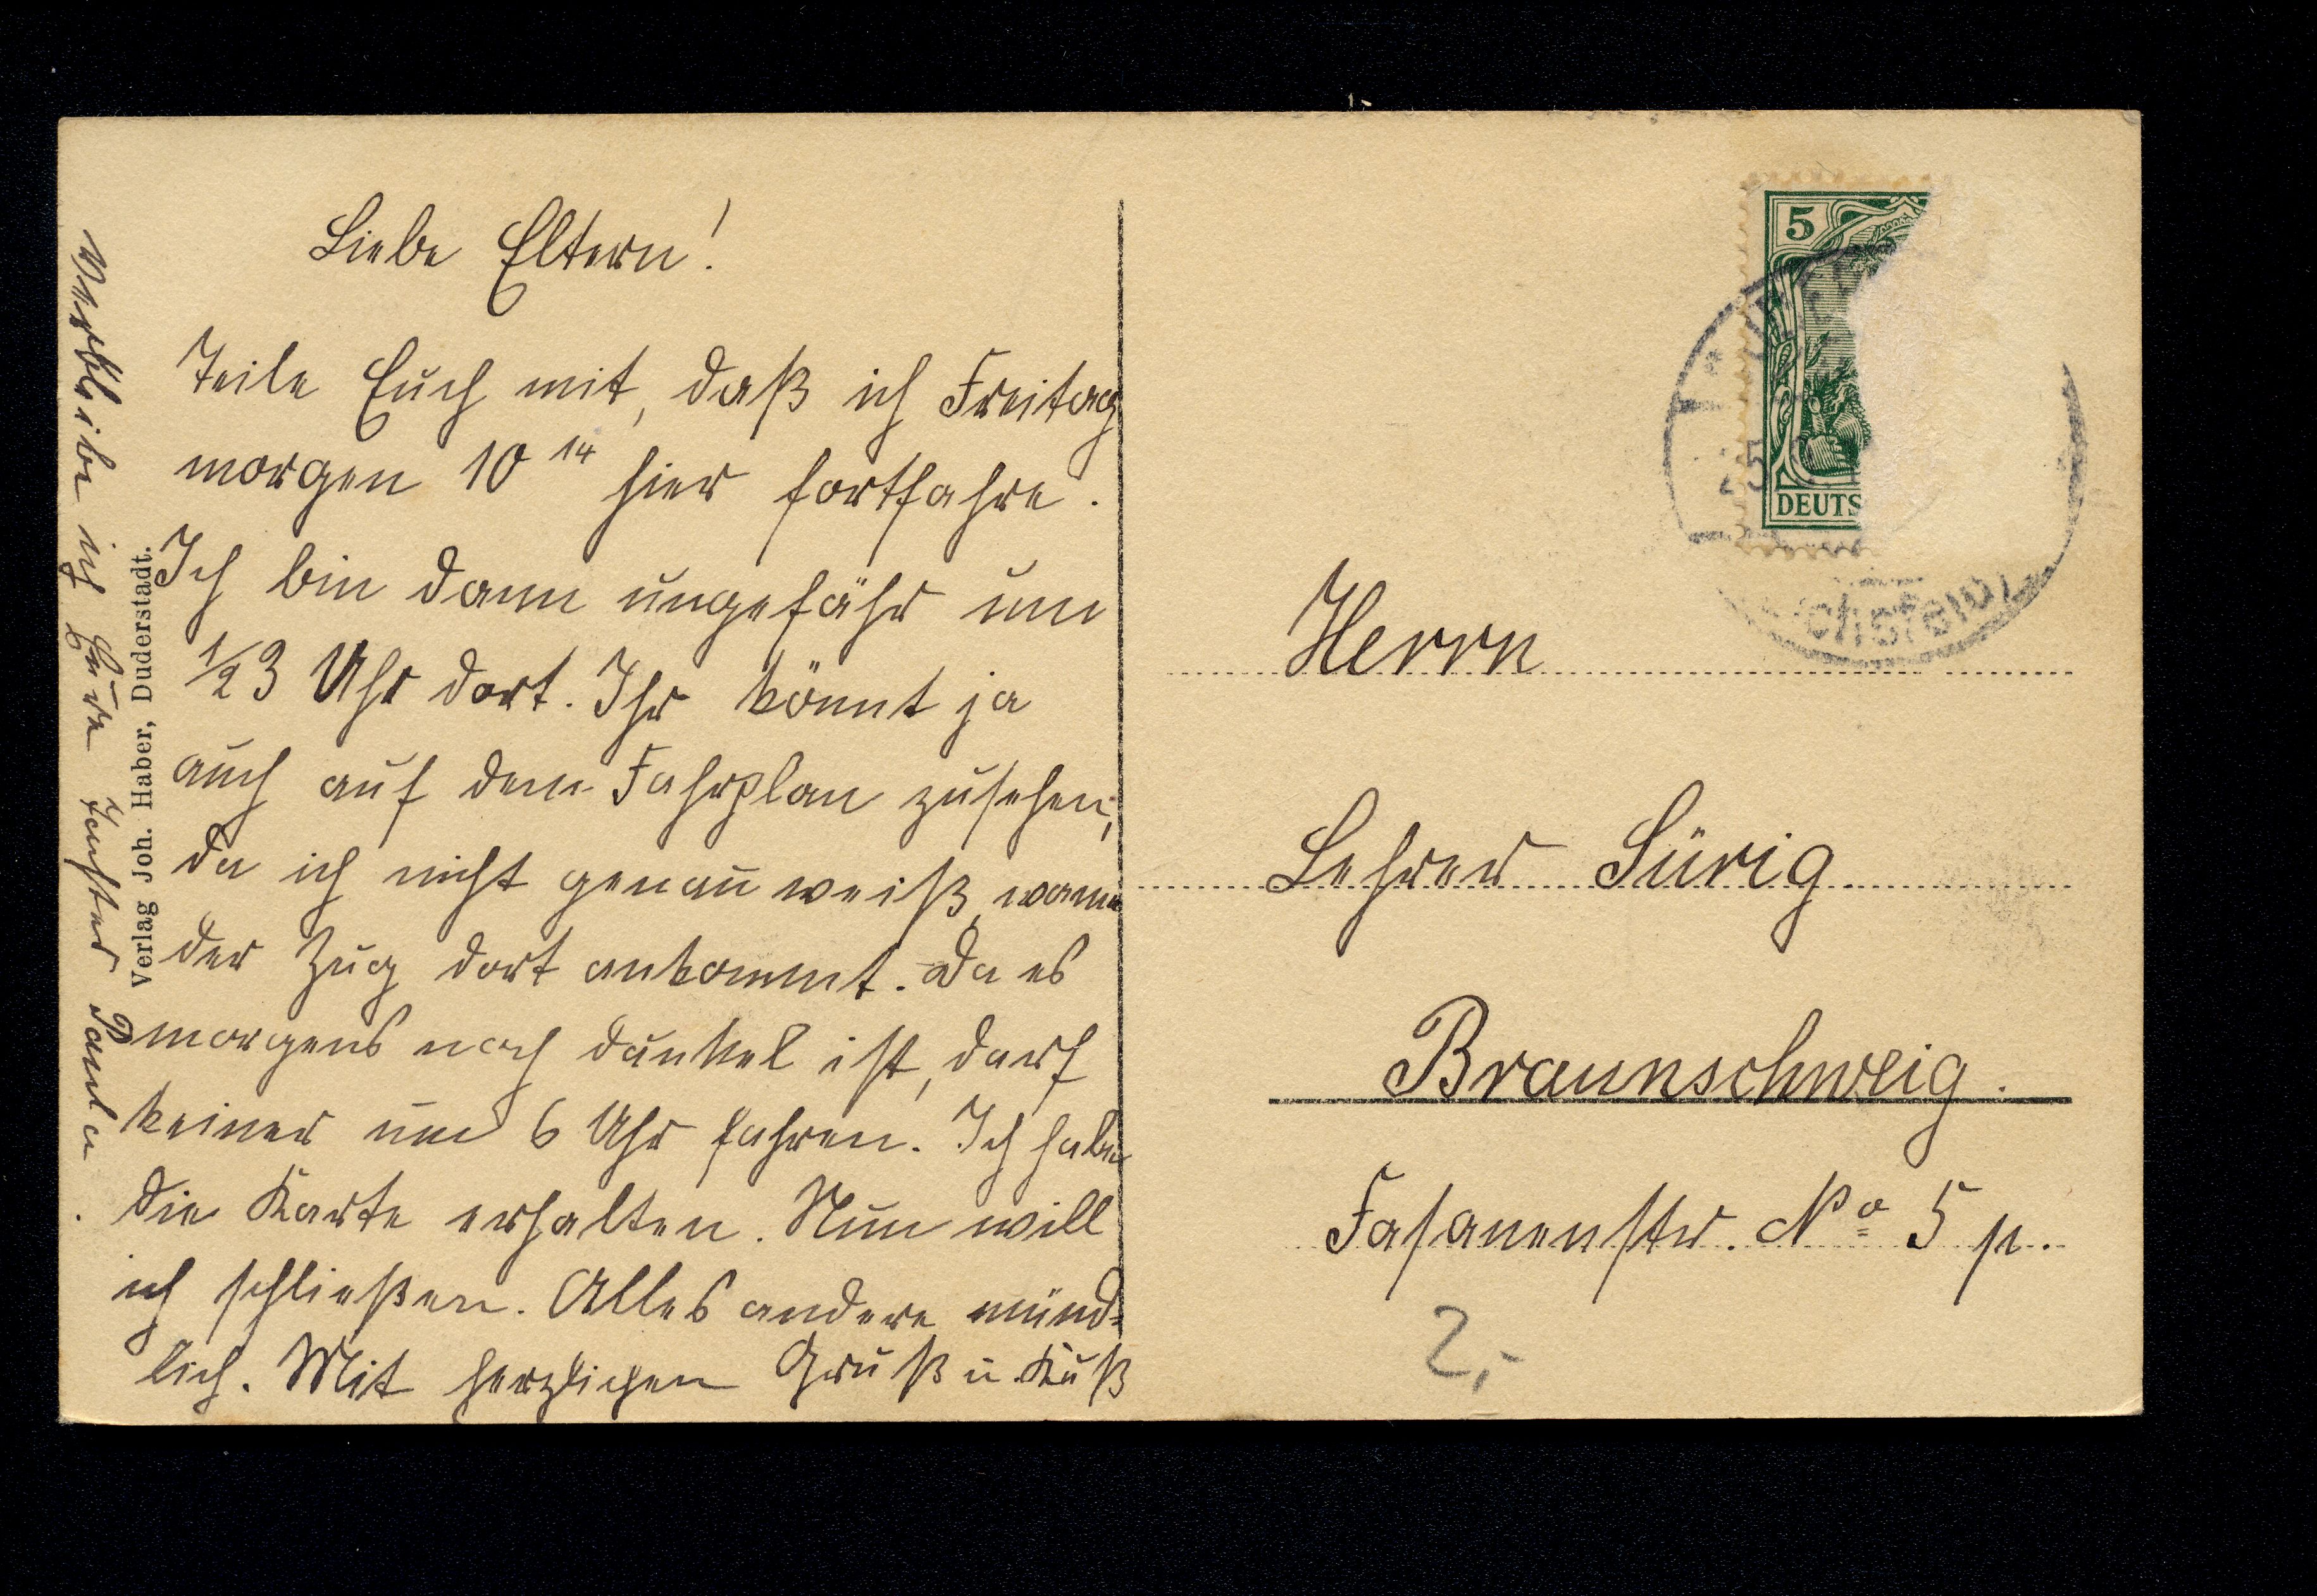 Liebe Eltern!
Teile Euch mit, daß ich Freitag
morgen 10 14 hier fortfahre.
Ich bin dann ungefähr um
1/2 3 Uhr dort. Ihr könnt ja
auch auf dem Fahrplan zusehen,
da ich nicht genau weiß, wann
der Zug dort ankommt. Da es
morgens noch dunkel ist, darf
keiner um 6 Uhr fahren. Ich habe
die Karte erhalten. Nun will
ich schließen. Alles andere münd=
lich. Mit herzlichen Gruß u. Kuß
Verbleibe ich Eure Tochter Paula.
Verlag Joh. Haber, Duderstadt.
5
DEUTS
25
chsfeld)
Herrn
Lehrer Sürig
Braunschweig.
Fasanenstr. No 5 p.
2,-